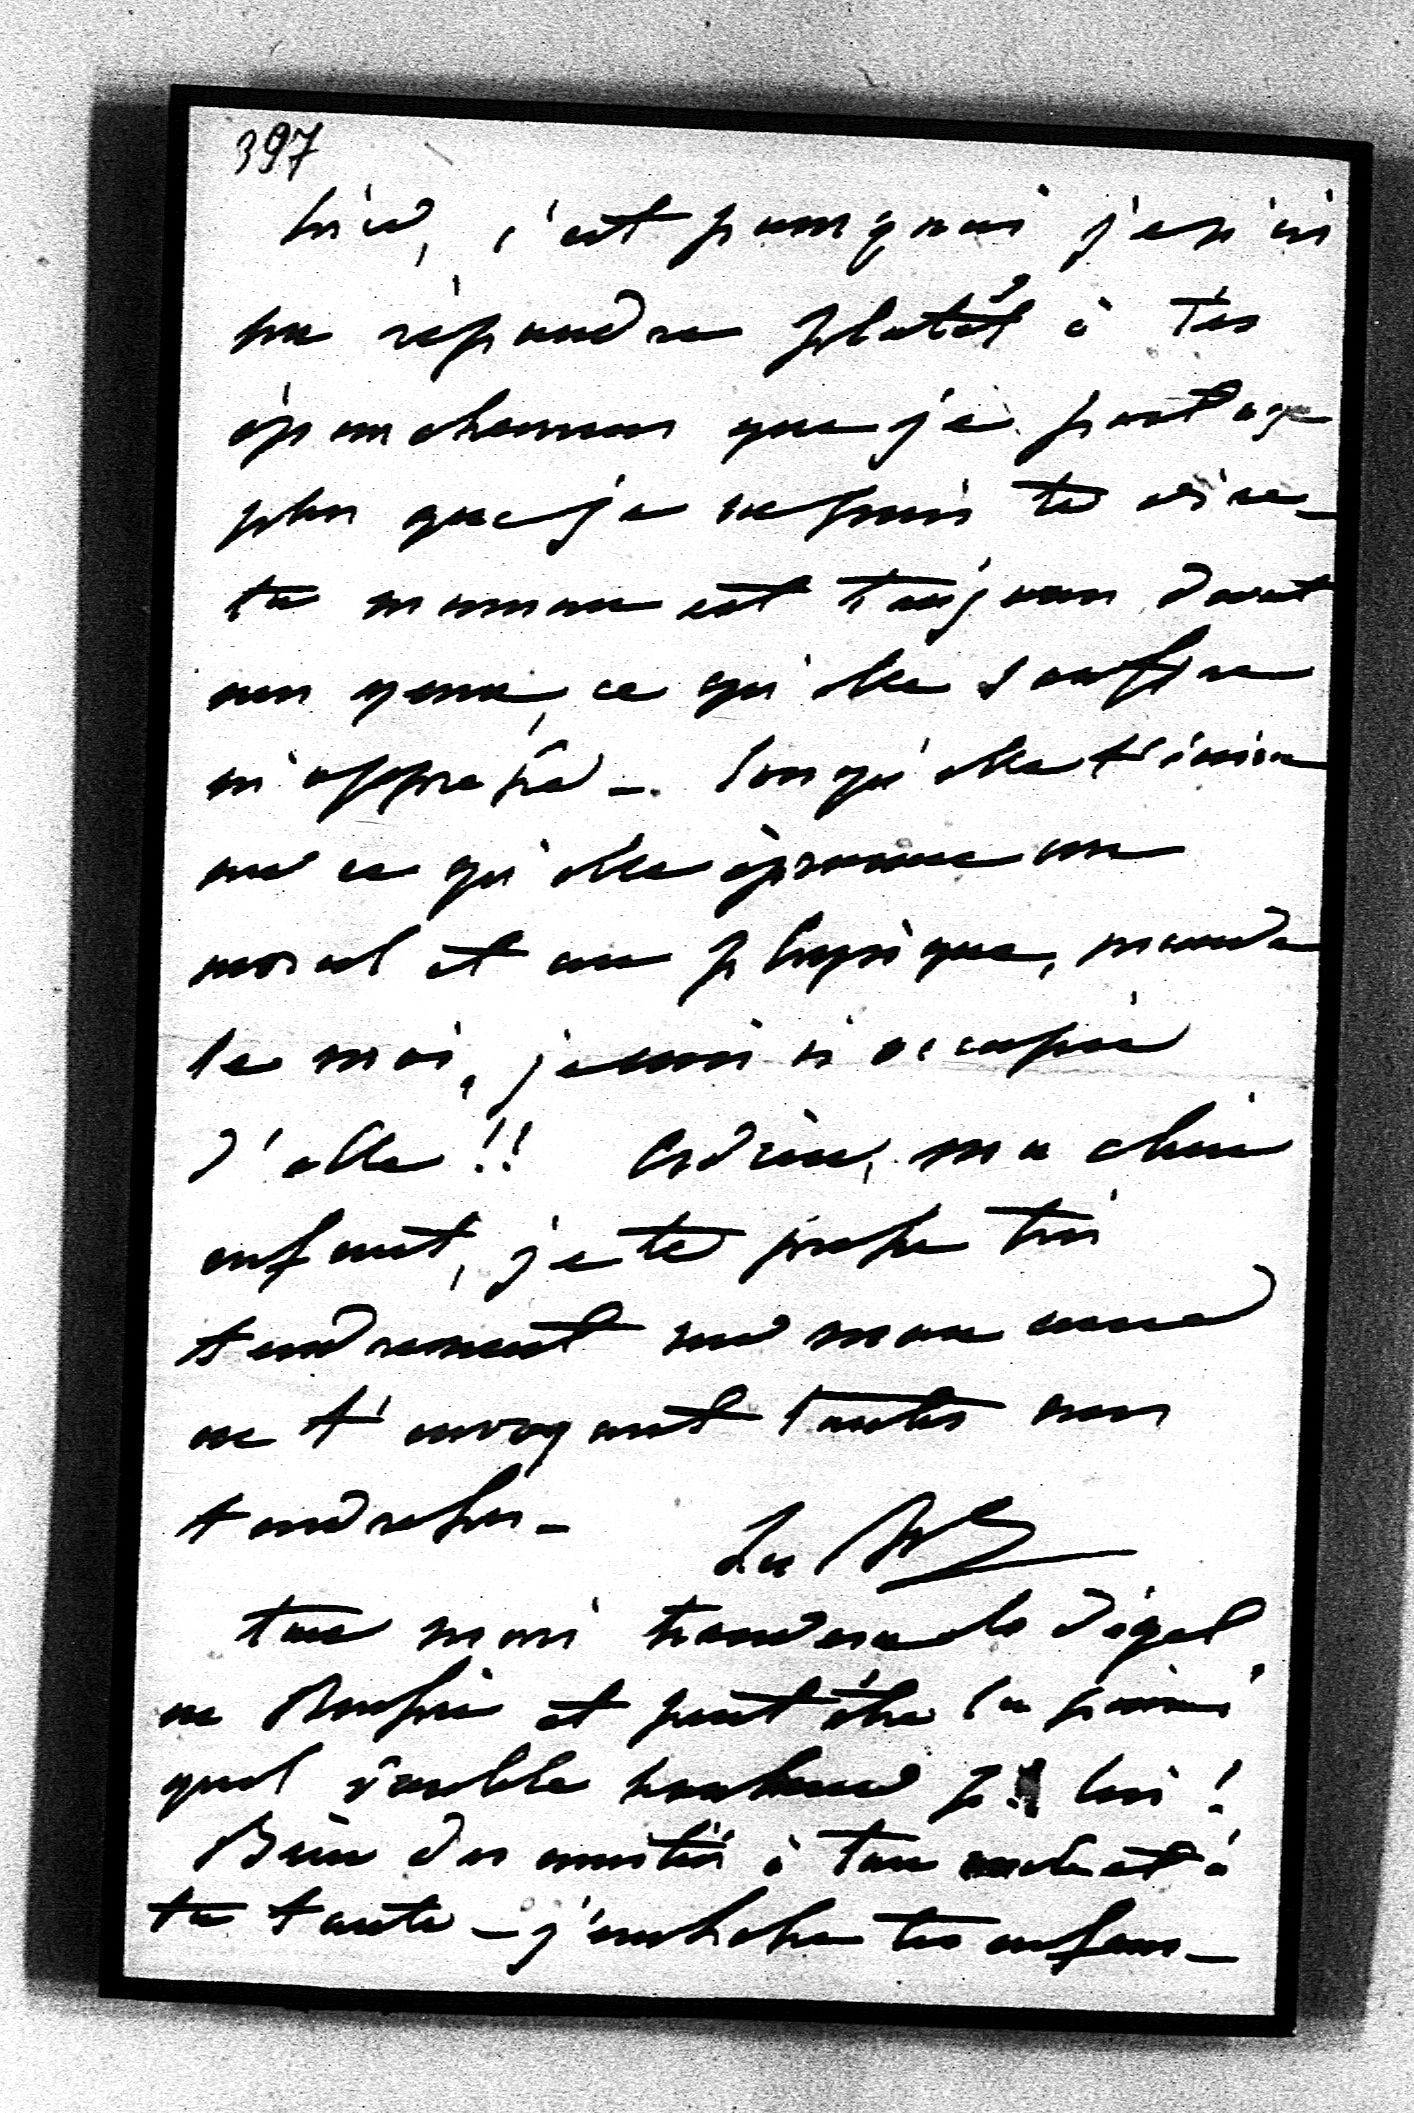 397
c'est pourquoi j'espère
répondre plutôt à tes
épanchemens que je partage
plus que je ne puis te dire_
ta maman est toujours devant
mes yeux, ce qu'elle souffre
m'oppresse _. lorsqu'elle t'écrira
sur ce qu'elle éprouve au
moral et au physique, mande
le moi, je suis si occupée
d'elle !! Adieu, ma chère
enfant, je te presse très
tendrement sur mon cœur
en t'envoyant toutes mes
tendresses _ La
ton mari trouvera
et peut être la
quel lui !
Bien des amitiés à ton oncle et à
ta tante _ j'embrasse tes enfans _